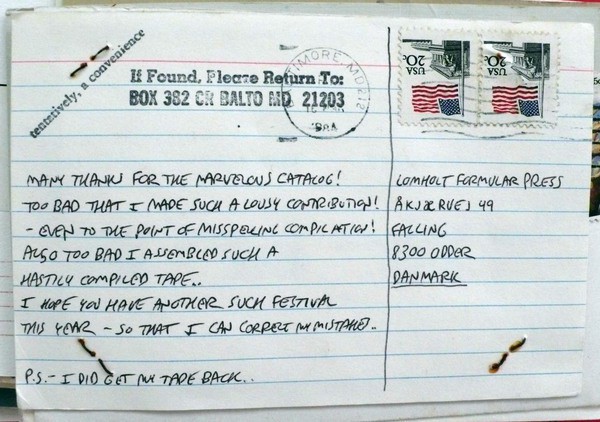 tentatively, a convenience
If Found, Please Return To:
BOX 382 CR BALTO MD 21203
TIMORE MD 212
USA 20c
USA 20c
MANY THANKS FOR THE MARVELOUS CATALOG!
TOO BAD THAT I MADE SUCH A LOUSY CONTRIBUTION!
- EVEN TO THE POINT OF MISSPELLING COMPILATION!
ALSO TOO BAD I ASSEMBLED SUCH A
HASTILY COMPILED TAPE..
I HOPE YOU HAVE ANOTHER SUCH FESTIVAL
THIS YEAR - SO THAT I CAN CORRECT MY MISTAKE..
P.S. - I DID GET MY TAPE BACK..
LOMHOLT FORMULAR PRESS
ÅKJÆRVEJ 49
FALLING
8300 ODDER
DANMARK